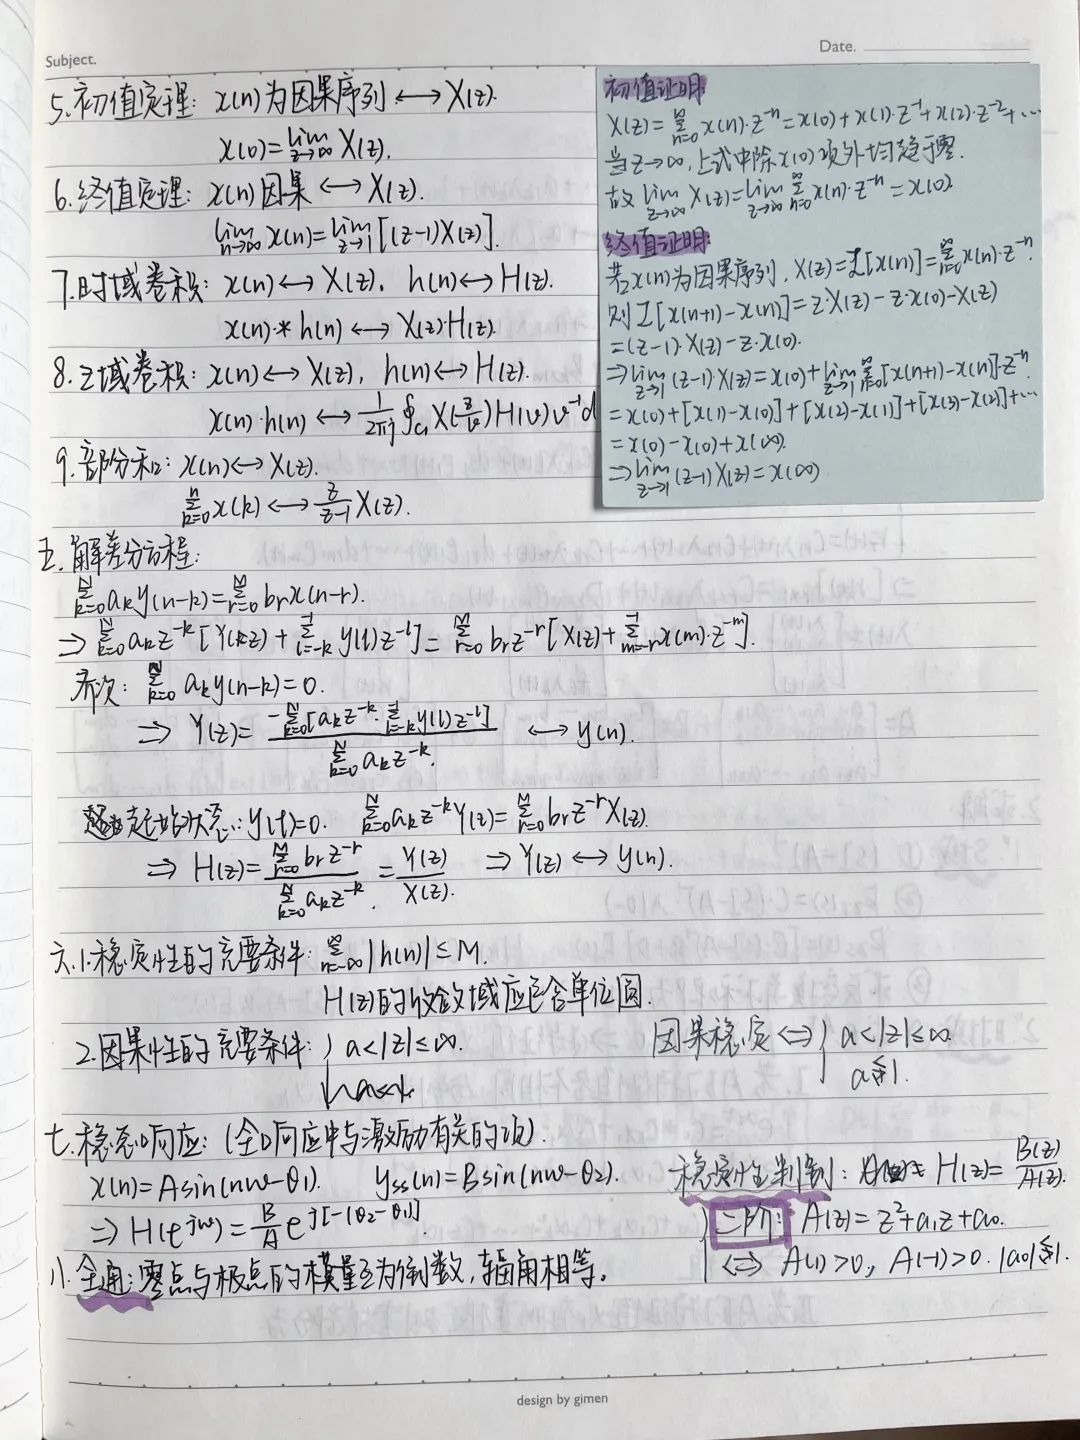 Subject.
Date.
5.初值定理: x(n)为因果序列 ⟷ X(z).
x(0)=lim_{z→∞} X(z).
6.终值定理: x(n)因果 ⟷ X(z).
lim_{n→∞} x(n)=lim_{z→1}[(z-1)X(z)].
7.时域卷积: x(n)⟷X(z), h(n)⟷H(z).
x(n)*h(n)⟷X(z)·H(z).
8.Z域卷积: x(n)⟷X(z), h(n)⟷H(z).
x(n)·h(n)⟷1/(2πj) ∮_{C1} X(z/v)H(v)v^{-1}d
9.部分和: x(n)⟷X(z).
∑_{k=0}^{n} x(k)⟷z/(z-1) X(z).
初值证明:
X(z)=∑_{n=0}^{∞} x(n)·z^{-n}=x(0)+x(1)·z^{-1}+x(2)·z^{-2}+…
当z→∞,上式中除x(0)项外均趋于零.
故 lim_{z→∞} X(z)=lim_{z→∞} ∑_{n=0}^{∞} x(n)·z^{-n}=x(0)
终值证明:
若x(n)为因果序列, X(z)=Z[x(n)]=∑_{n=0}^{∞} x(n)·z^{-n}.
则Z[x(n+1)-x(n)]=z·X(z)-z·x(0)-X(z)
=(z-1)·X(z)-z·x(0).
⇒lim_{z→1}(z-1)X(z)=x(0)+lim_{z→1} ∑_{n=0}^{∞}[x(n+1)-x(n)]·z^{-n}
=x(0)+[x(1)-x(0)]+[x(2)-x(1)]+[x(3)-x(2)]+…
=x(0)-x(0)+x(∞).
⇒lim_{z→1}(z-1)X(z)=x(∞)
五.解差分方程:
∑_{k=0}^{N} a_k y(n-k)=∑_{r=0}^{M} b_r x(n-r).
⇒ ∑_{k=0}^{N} a_k z^{-k}[Y(z)+∑_{l=-k}^{-1} y(l)z^{-l}]=∑_{r=0}^{M} b_r z^{-r}[X(z)+∑_{m=-r}^{-1} x(m)·z^{-m}].
齐次: ∑_{k=0}^{N} a_k y(n-k)=0.
⇒ Y(z)= -∑_{k=0}^{N}[a_k z^{-k}·∑_{l=-k}^{-1} y(l)z^{-l}] / ∑_{k=0}^{N} a_k z^{-k}. ⟷ y(n).
起始状态: y(l)=0. ∑_{k=0}^{N} a_k z^{-k}Y(z)=∑_{r=0}^{M} b_r z^{-r}X(z).
⇒ H(z)= ∑_{r=0}^{M} b_r z^{-r} / ∑_{k=0}^{N} a_k z^{-k}. = Y(z)/X(z). ⇒ Y(z)⟷y(n).
六.1.稳定性的充要条件: ∑_{n=-∞}^{∞} |h(n)|≤M.
H(z)的收敛域应包含单位圆.
2.因果性的充要条件: a<|z|≤∞.
因果稳定 ⟺ { a<|z|≤∞
a≤1.
七.稳态响应: (全响应中与激励有关的项).
x(n)=Asin(nω-θ1). yss(n)=Bsin(nω-θ2).
⇒ H(e^{jω})=B/A e^{j[-(θ2-θ1)]}.
稳定性判别: H(z)=B(z)/A(z).
二阶: A(z)=z²+a₁z+a₀.
⟺ A(1)>0, A(-1)>0. |a₀|≤1.
八.全通: 零点与极点的模量互为倒数,辐角相等。
design by gimen